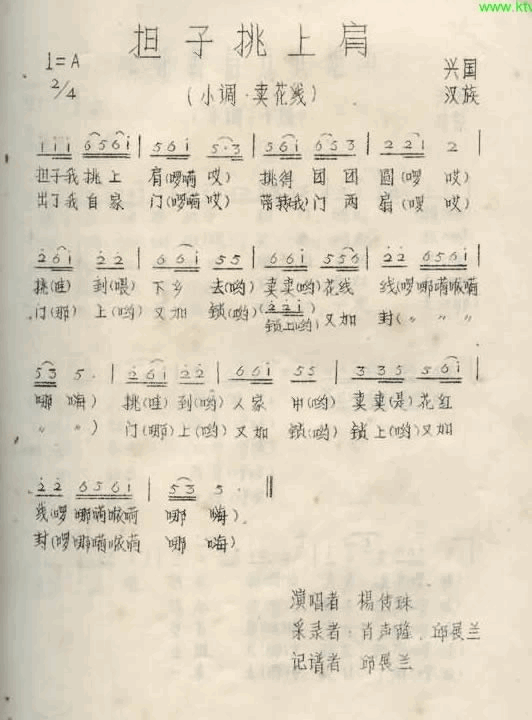 www.kt
担子挑上肩
1=A
2/4
(小调·卖花线)
兴国
汉族
i i i 6 5 6 i | 5 6 i 5·3 | 5 6 i 6 5 3 | 2 2 i 2 |
担子我挑上 肩(啰嗬哎) 挑得 团团 圆(啰 哎)
出了我自家 门(啰嗬哎) 带转(我)门两 扇(啰 哎)
2 6 i 2 2 | 6 6 i 5 5 | 6 6 i 5 5 6 | 2 2 6 5 6 i |
挑(哇) 到(喂) 下乡 去(哟) 卖卖(哟)花线 线(啰哪嗬嗾嗬
(2 2 i)
门(那) 上(哟) 又加 锁(哟) 锁上(哟)又加 封(〃 〃 〃
5 3 5 · | 2 6 i 2 2 | 6 6 i 5 5 | 3 3 5 5 6 i |
哪 嗨) 挑(哇)到(哟) 人家 中(哟) 卖卖(是)花红
〃 〃) 门(哪)上(哟) 又加 锁(哟) 锁上(哟)又加
2 2 6 5 6 i | 5 3 5 · ‖
线(啰 哪嗬嗾嗬 哪 嗨)
封(啰哪嗬嗾嗬 哪 嗨)
演唱者 楊传珠
采录者:肖声隆、邱展兰
记谱者 邱展兰